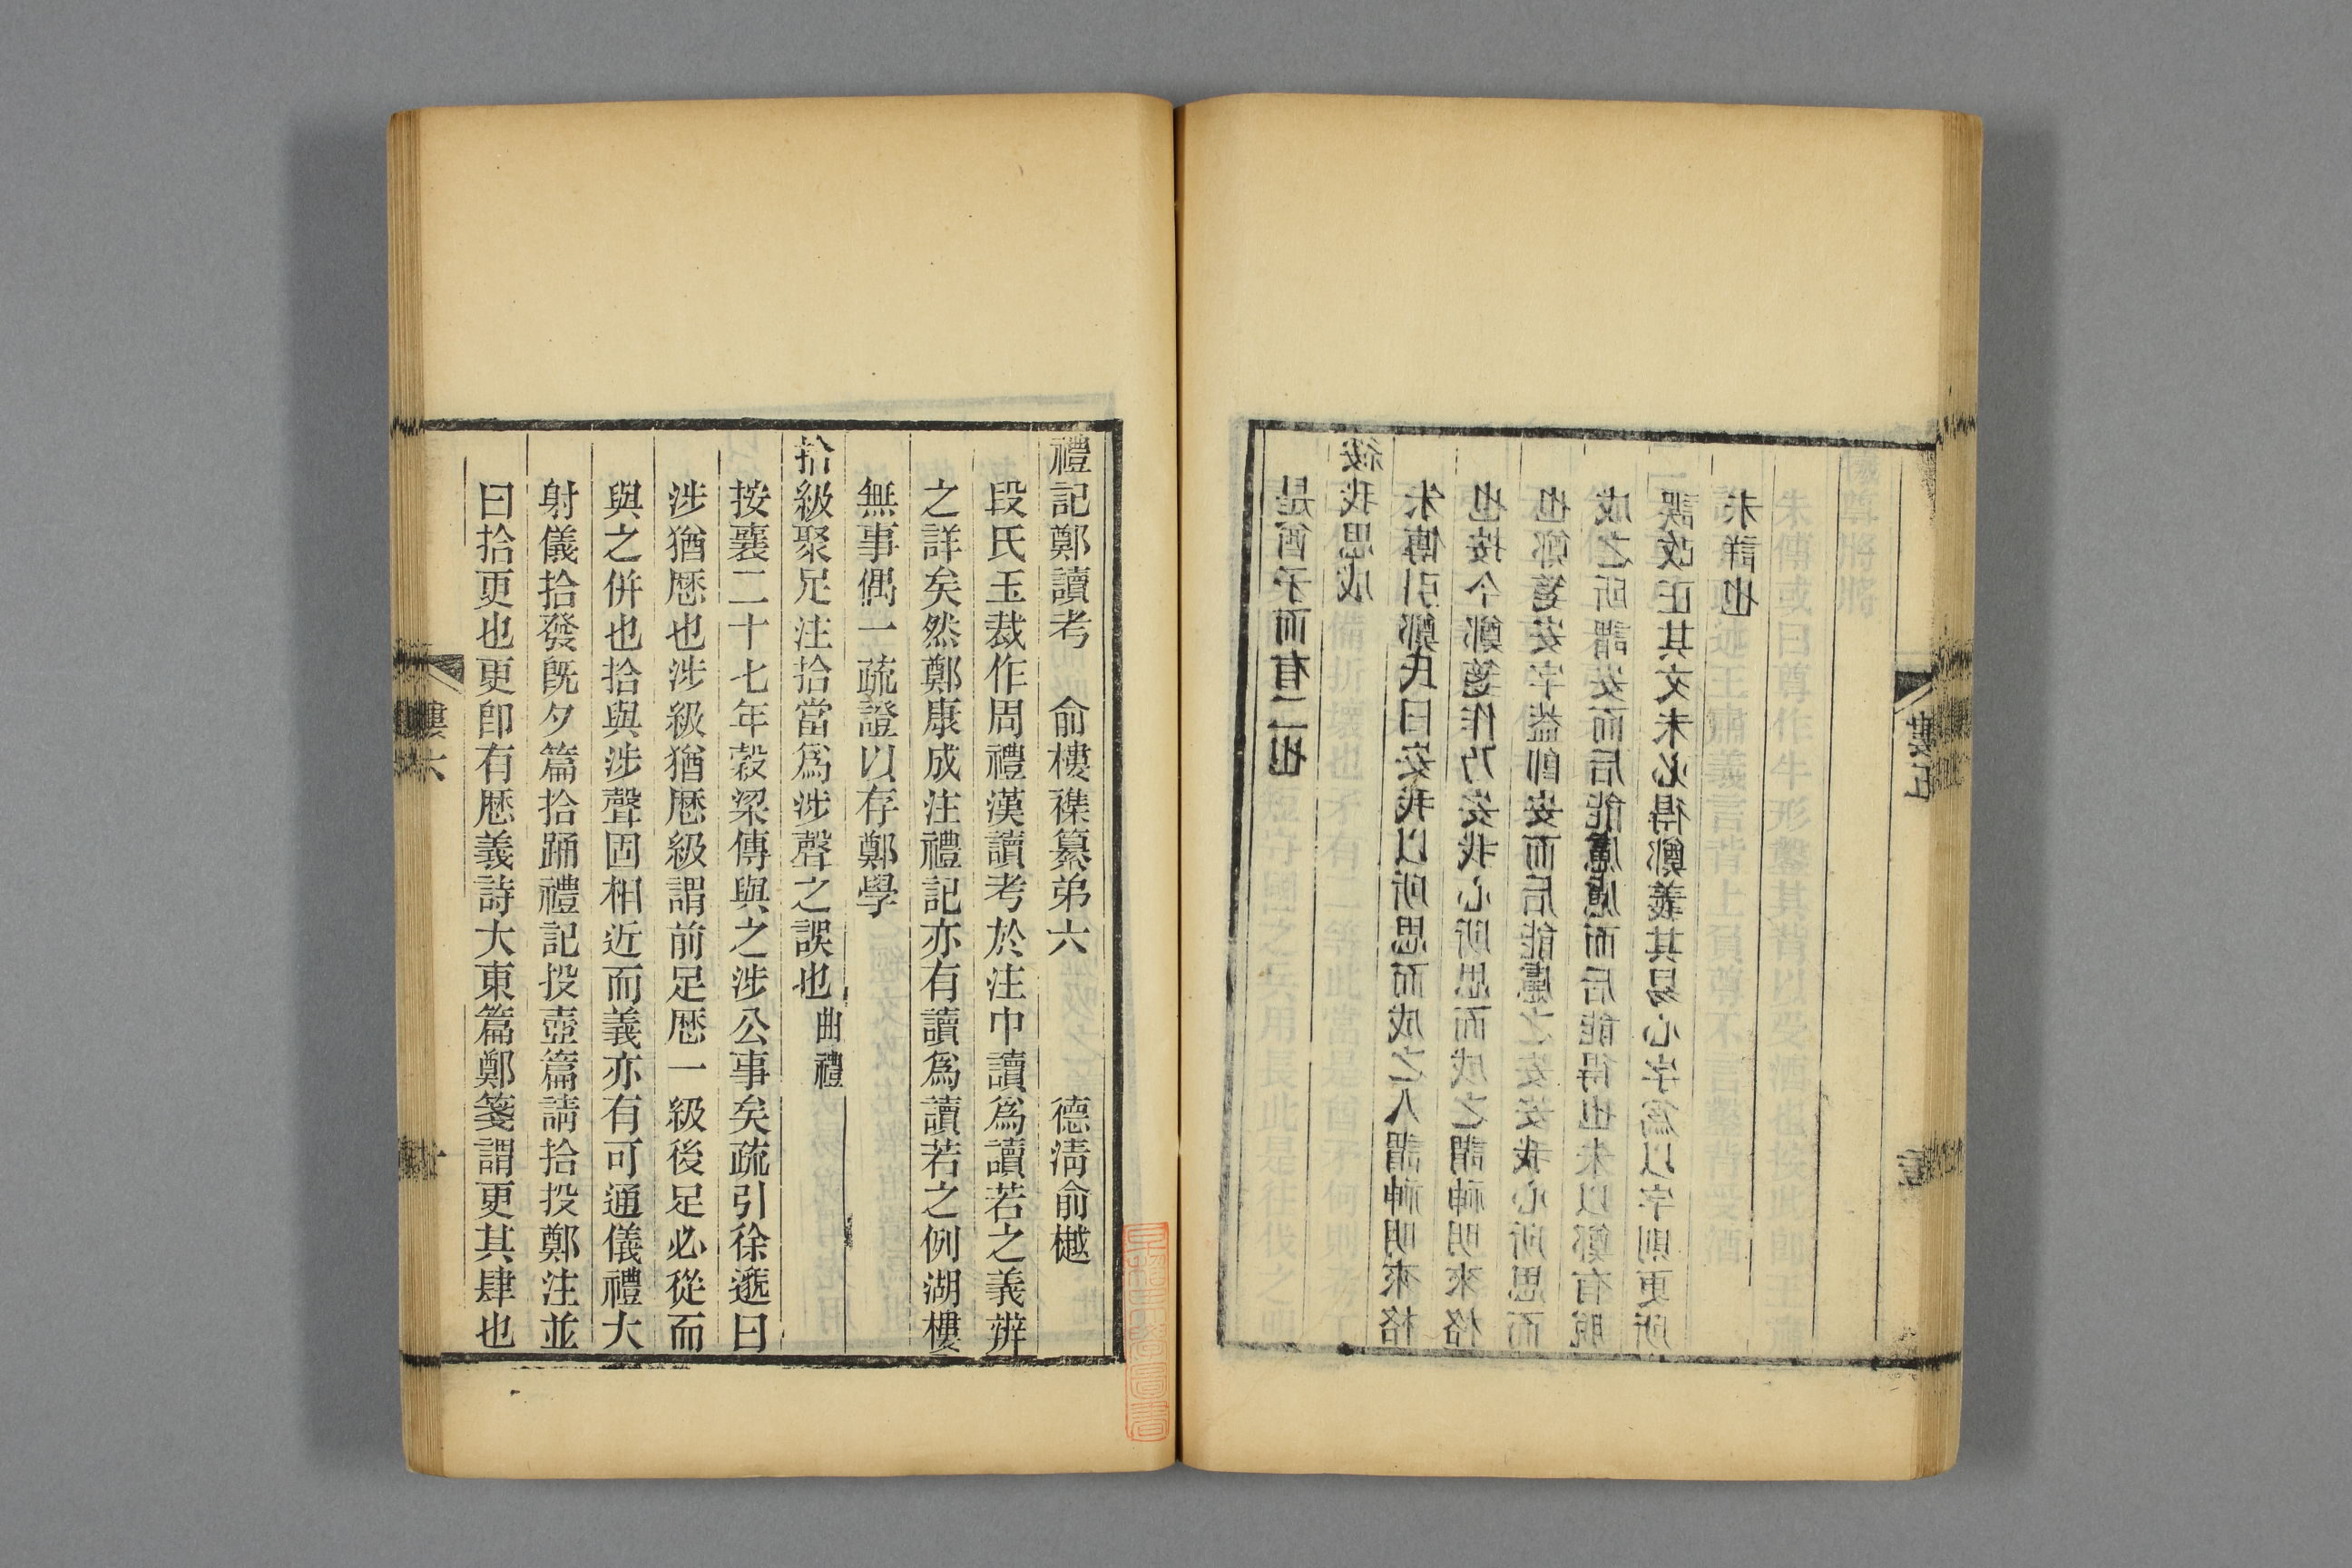 是酋矛而有二也
綏我思成
朱傳引鄭氏曰安我以所思而成之人謂神明來格
也按今鄭箋作乃安我心所思而成之謂神明來格
也鄭箋安字葢即安而后能慮之安安我心所思而
成之所謂安而后能慮慮而后能得也朱以鄭有脫
誤改正其文未必得鄭義其易心字爲以字則更所
未詳也
樓五
禮記鄭讀考 俞樓襍纂弟六 德清俞樾
段氏玉裁作周禮漢讀考於注中讀爲讀若之義辨
之詳矣然鄭康成注禮記亦有讀爲讀若之例湖樓
無事偶一疏證以存鄭學
拾級聚足注拾當爲涉聲之誤也 曲禮
按襄二十七年穀梁傳與之涉公事矣疏引徐邈曰
涉猶歷也涉級猶歷級謂前足歷一級後足必從而
與之併也拾與涉聲固相近而義亦有可通儀禮大
射儀拾發旣夕篇拾踊禮記投壺篇請拾投鄭注並
曰拾更也更卽有歷義詩大東篇鄭箋謂更其肆也
樓六